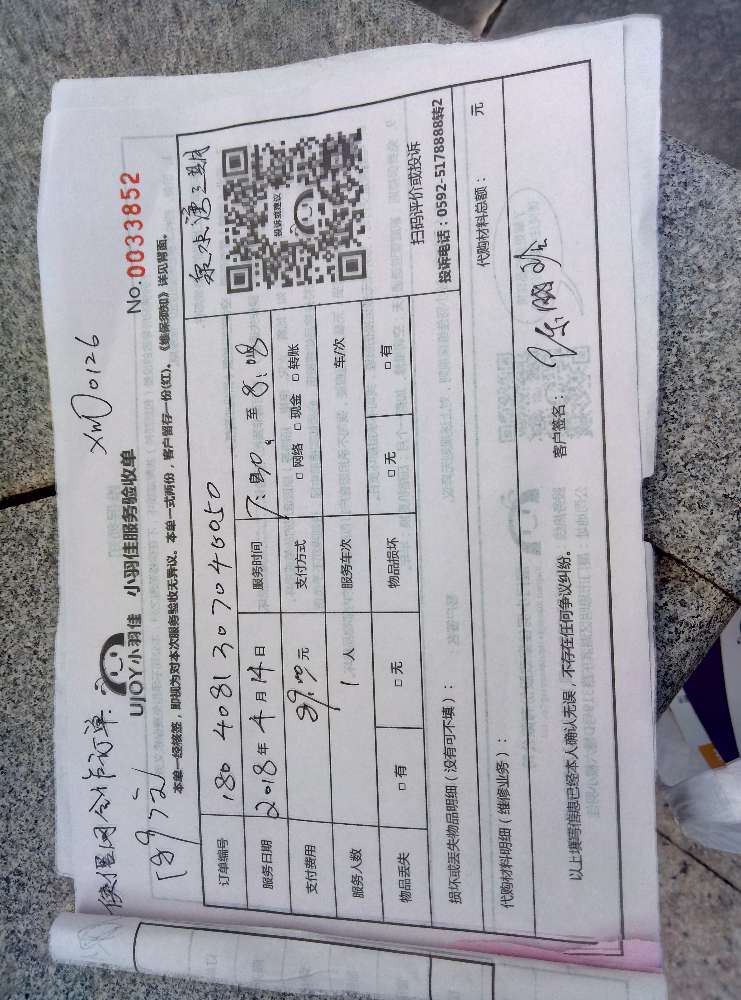 XM00126
No.0033852
UJOY小羽佳 小羽佳服务验收单
本单一经核签，即视为对本次服务验收无异议。本单一式两份，客户留存一份(红)。《维保须知》详见背面。
订单编号 1804081307040050
泉水湾三期
服务日期 2018年4月14日 服务时间 至8:08
支付费用 89.00元 支付方式 □网络 □现金 □转账
服务人数 1人 服务车次 车/次
物品丢失 □有 □无 物品损坏 □无 □有
投诉或建议
扫码评价或投诉
投诉电话：0592-5178888转2
损坏或丢失物品明细（没有可不填）：
代购材料明细（维修业务）： 代购材料总额： 元
以上填写信息已经本人确认无误，不存在任何争议纠纷。 客户签名：